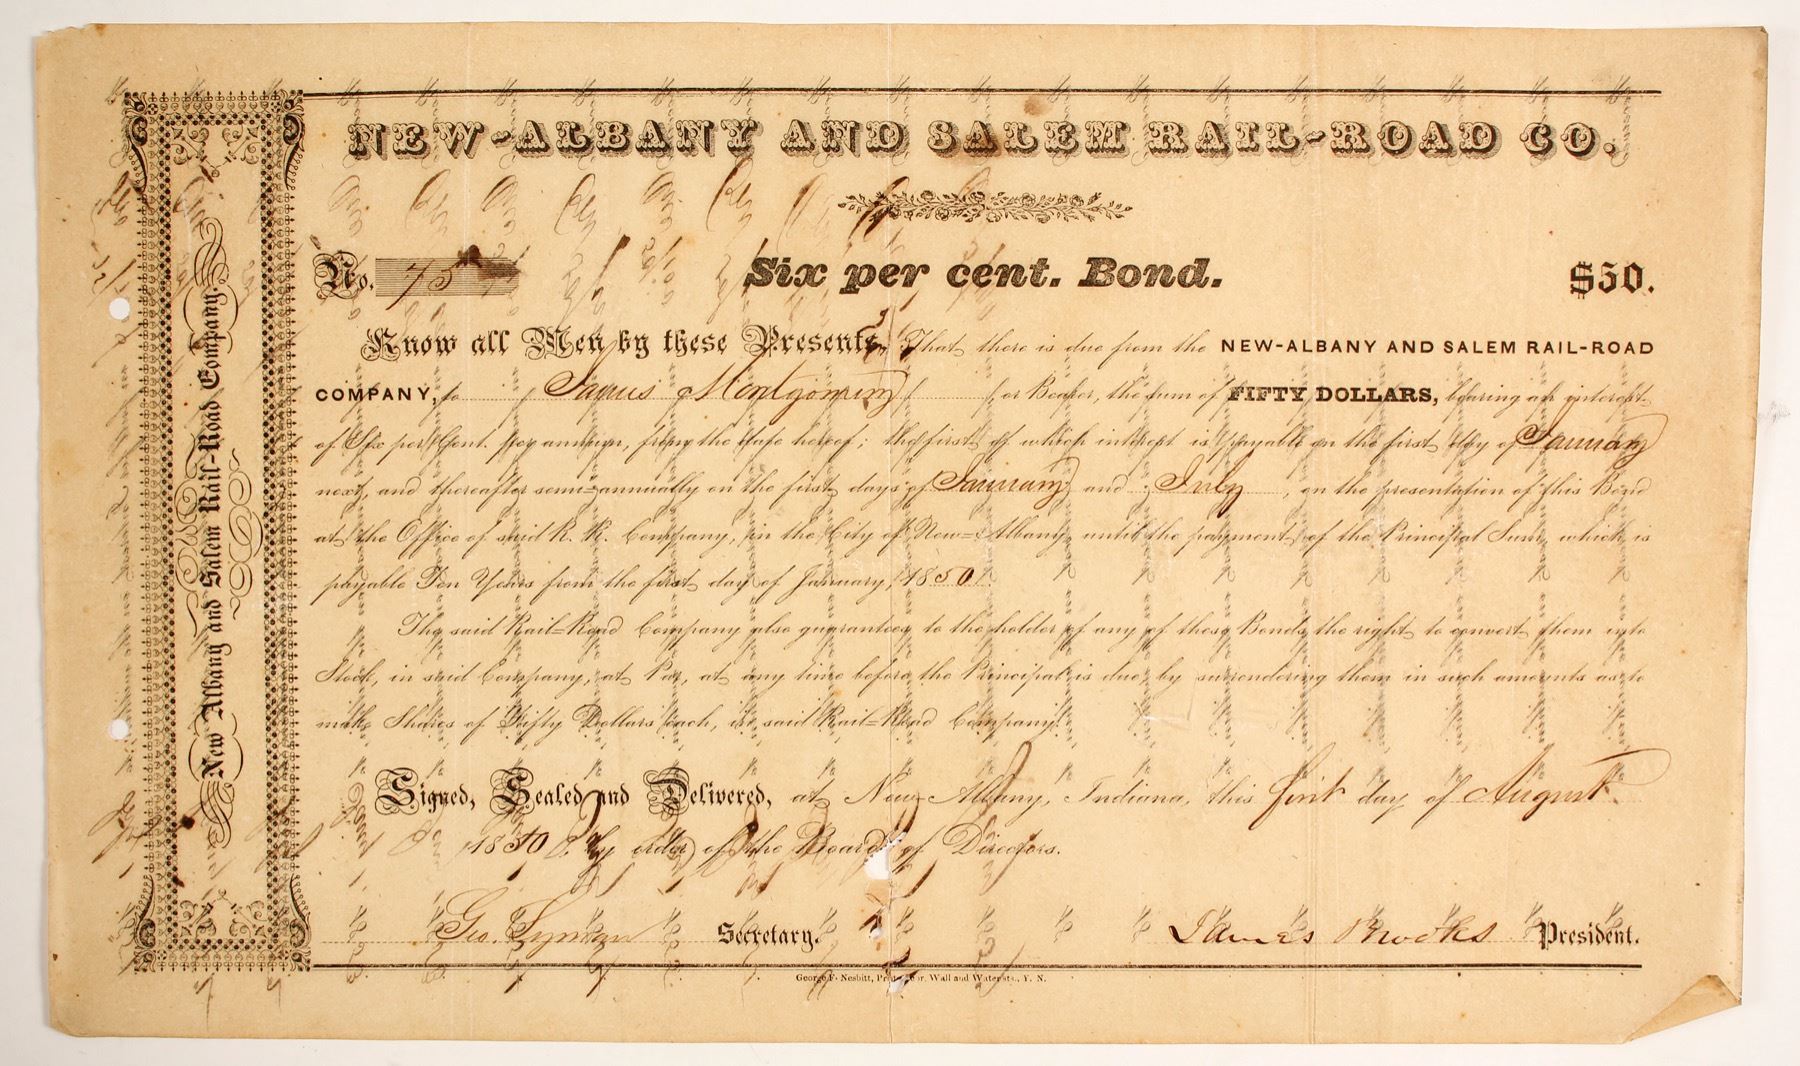 NEW-ALBANY AND SALEM RAIL-ROAD CO.
No. 45
Six per cent. Bond.
$50.
Know all Men by these Presents, That there is due from the NEW-ALBANY AND SALEM RAIL-ROAD
COMPANY, to James Montgomery, or Bearer, the sum of FIFTY DOLLARS, bearing an interest
of Six per Cent. per annum, from the date hereof; the first of which interest is payable on the first day of January
next, and thereafter semi=annually on the first days of January and July, on the presentation of this Bond
at the Office of said R. R. Company, in the City of New=Albany, until the payment of the Principal Sum, which is
payable Ten Years from the first day of January, 1850.
The said Rail=Road Company also guarantees to the holder of any of these Bonds, the right to convert them into
Stock, in said Company, at Par, at any time before the Principal is due, by surrendering them in such amounts as to
make Shares of Fifty Dollars each, in said Rail=Road Company.
Signed, Sealed and Delivered, at New-Albany, Indiana, this first day of August
1850 By order of the Board of Directors.
Geo. Lyman Secretary.
James Brooks President.
George F. Nesbitt, Wall and Water sts., Y. N.
New Albany and Salem Rail-Road Company